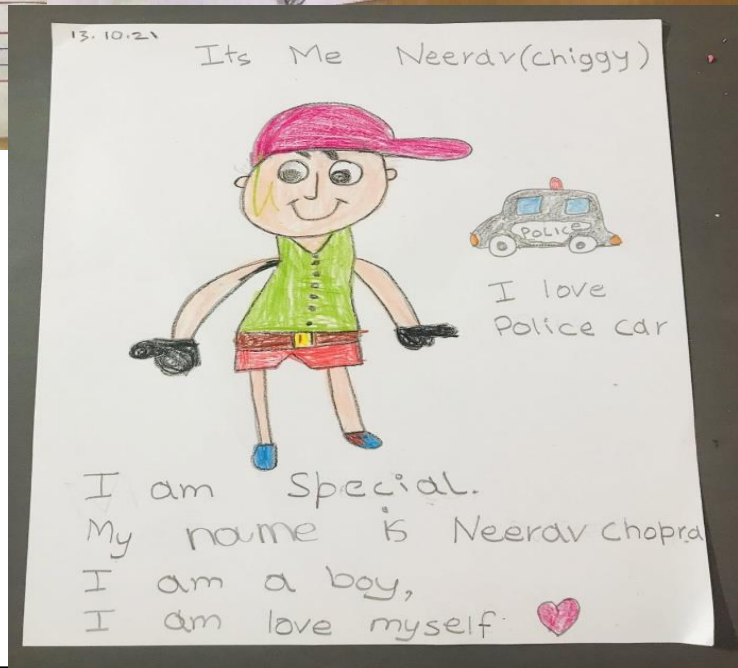 13.10.21
Its Me Neerav(chiggy)
POLICE
I love
Police car
I am Special.
My name is Neerav Chopra
I am a boy,
I am love myself.